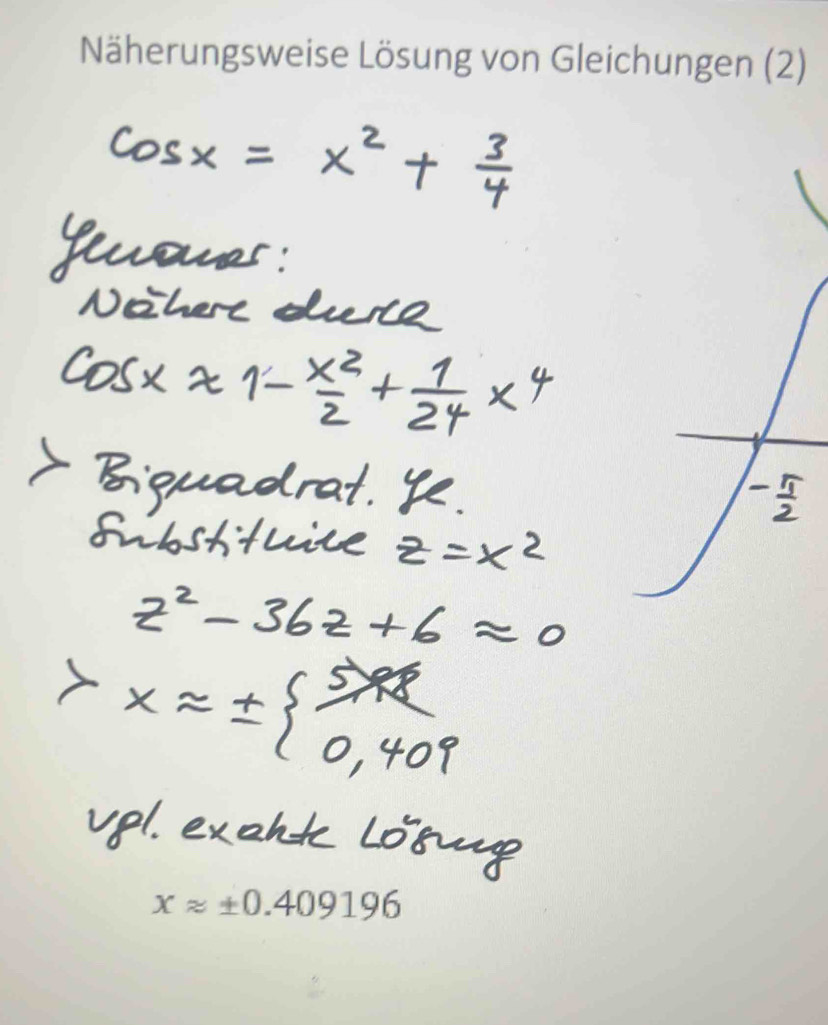 Näherungsweise Lösung von Gleichungen (2)
cos x = x² + 3/4
Genauer:
Nähere durch
cos x ≈ 1 - x²/2 + 1/24 x⁴
> Biquadrat. Gl.
Substituiere z = x²
z² - 36z + 6 ≈ 0
> x ≈ ± { 5,98
0,409
vgl. exakte Lösung
x ≈ ±0.409196
-π/2